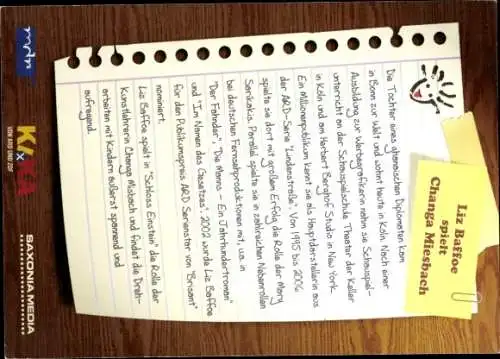 Liz Baffoe
spielt
Changa Miesbach
Die Tochter eines ghanaischen Diplomaten kam
in Bonn zur Welt und wohnt heute in Köln. Nach einer
Ausbildung zur Werbegrafikerin nahm sie Schauspiel-
unterricht an der Schauspielschule Theater der Keller
in Köln und am Herbert Berghof Studio in New York.
Ein Millionenpublikum kennt sie als Hauptdarstellerin aus
der ARD-Serie "Lindenstraße". Von 1995 bis 2006
spielte sie dort mit großem Erfolg die Rolle der Mary
Sarikakis. Parallel spielte sie in zahlreichen Nebenrollen
bei deutschen Fernsehproduktionen mit, u.a. in
"Der Fahnder", "Die Manns - Ein Jahrhundertroman"
und "Im Namen des Gesetzes". 2002 wurde Liz Baffoe
für den Publikumspreis ARD Serienstar von "Brisant"
nominiert.
Liz Baffoe spielt in "Schloss Einstein" die Rolle der
Kunstlehrerin Changa Misbach und findet die Dreh-
arbeiten mit Kindern äußerst spannend und
aufregend.
mdr
KI.KA
VON ARD UND ZDF
SAXONIA MEDIA